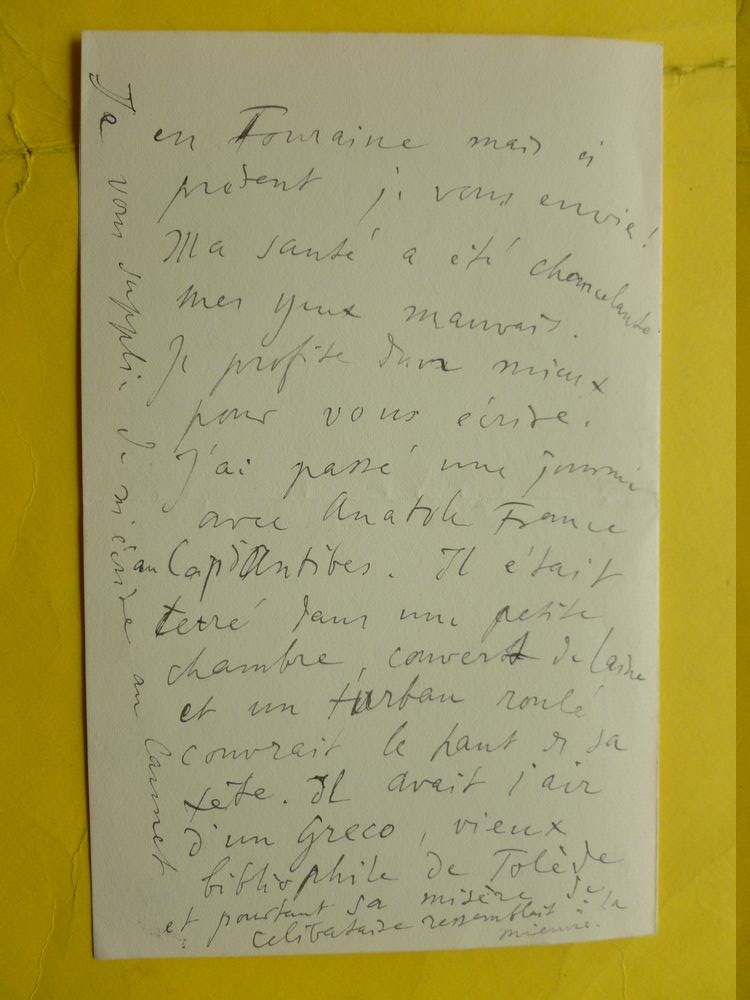 en Touraine mais à
présent je vous envie!
Ma santé a été chancelante
mes yeux mauvais.
Je profite d'un mieux
pour vous écrire.
J'ai passé une journée
avec Anatole France
au Cap d'Antibes. Il était
terré dans une petite
chambre, couvert de laine
et un turban roulé
couvrait le haut de sa
tête. Il avait l'air
d'un Greco, vieux
bibliophile de Tolède
et pourtant sa misère de
celibataire ressemblait à la
mienne.
Je vous supplie de m'écrire au Cannet